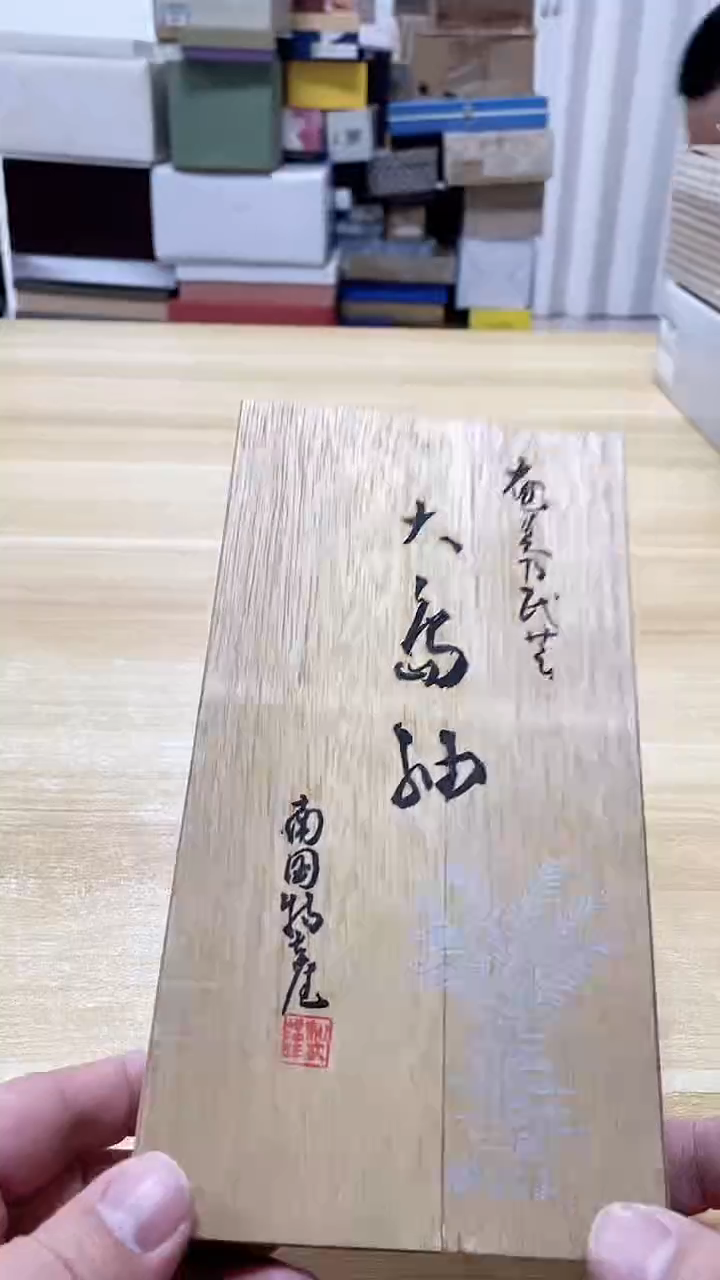 奄美乃民芸
大島紬
南国物産